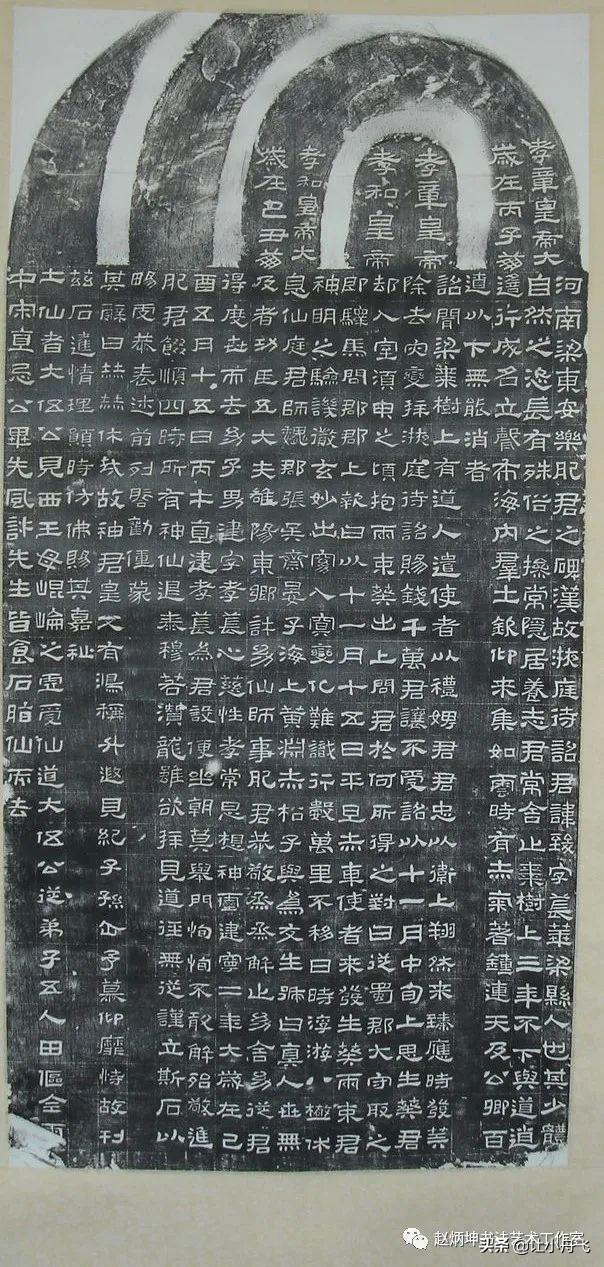 孝章皇帝
孝和皇帝
孝章皇帝大
歲在丙子崩
孝和皇帝大
歲在己丑崩
河南梁東安樂肥君之碑漢故掖庭待詔君諱致字萇華梁縣人也其少體
自然之恣長有殊俗之操常隱居養志君常舍止棗樹上三年不下與道逍
遙行成名立聲布海內羣士欽仰來集如雲時有赤氣著鍾連天及公卿百
遼以下無能消者
詔聞梁棗樹上有道人遣使者以禮娉君君忠以衛上翔然來臻應時發筭
除去災變拜掖庭待詔賜錢千萬君讓不受詔以十一月中旬上思生葵君
却入室須臾之頃抱兩束葵出上問君於何所得之對曰從蜀郡大守取之
即驛馬問郡郡上報曰以十一月十五日平旦赤車使者來發生葵兩束君
神明之驗譏徹玄妙出窈入冥變化難識行數萬里不移日時浮游八極休
息仙庭君師魏郡張吳齋晏子海上黃淵赤松子與為友生號曰真人世無
及者功臣五大夫雒陽東鄉許幼仙師事肥君恭敬烝烝解止幼舍幼從君
得度世而去幼子男建字孝萇心慈性孝常思想神靈建寧二年大歲在己
酉五月十五日丙午直建孝萇為君設便坐朝莫舉門恂恂不敢解殆敬進
肥君餟順四時所有神仙退泰穆若潛龍雖欲拜見道徑無從謹立斯石以
暢虔恭表述前列啓勸僮蒙
其辭曰赫赫休哉故神君皇父有鴻稱升遐見紀子孫企予慕仰靡恃故刊
茲石達情理願時仿佛賜其嘉祉
土仙者大伍公見西王母崐崘之虛受仙道大伍公從弟子五人田傴全雨
中宋直忌公畢先風許先生皆食石脂仙而去
赵炳坤书法艺术工作室
头条@让小丹飞